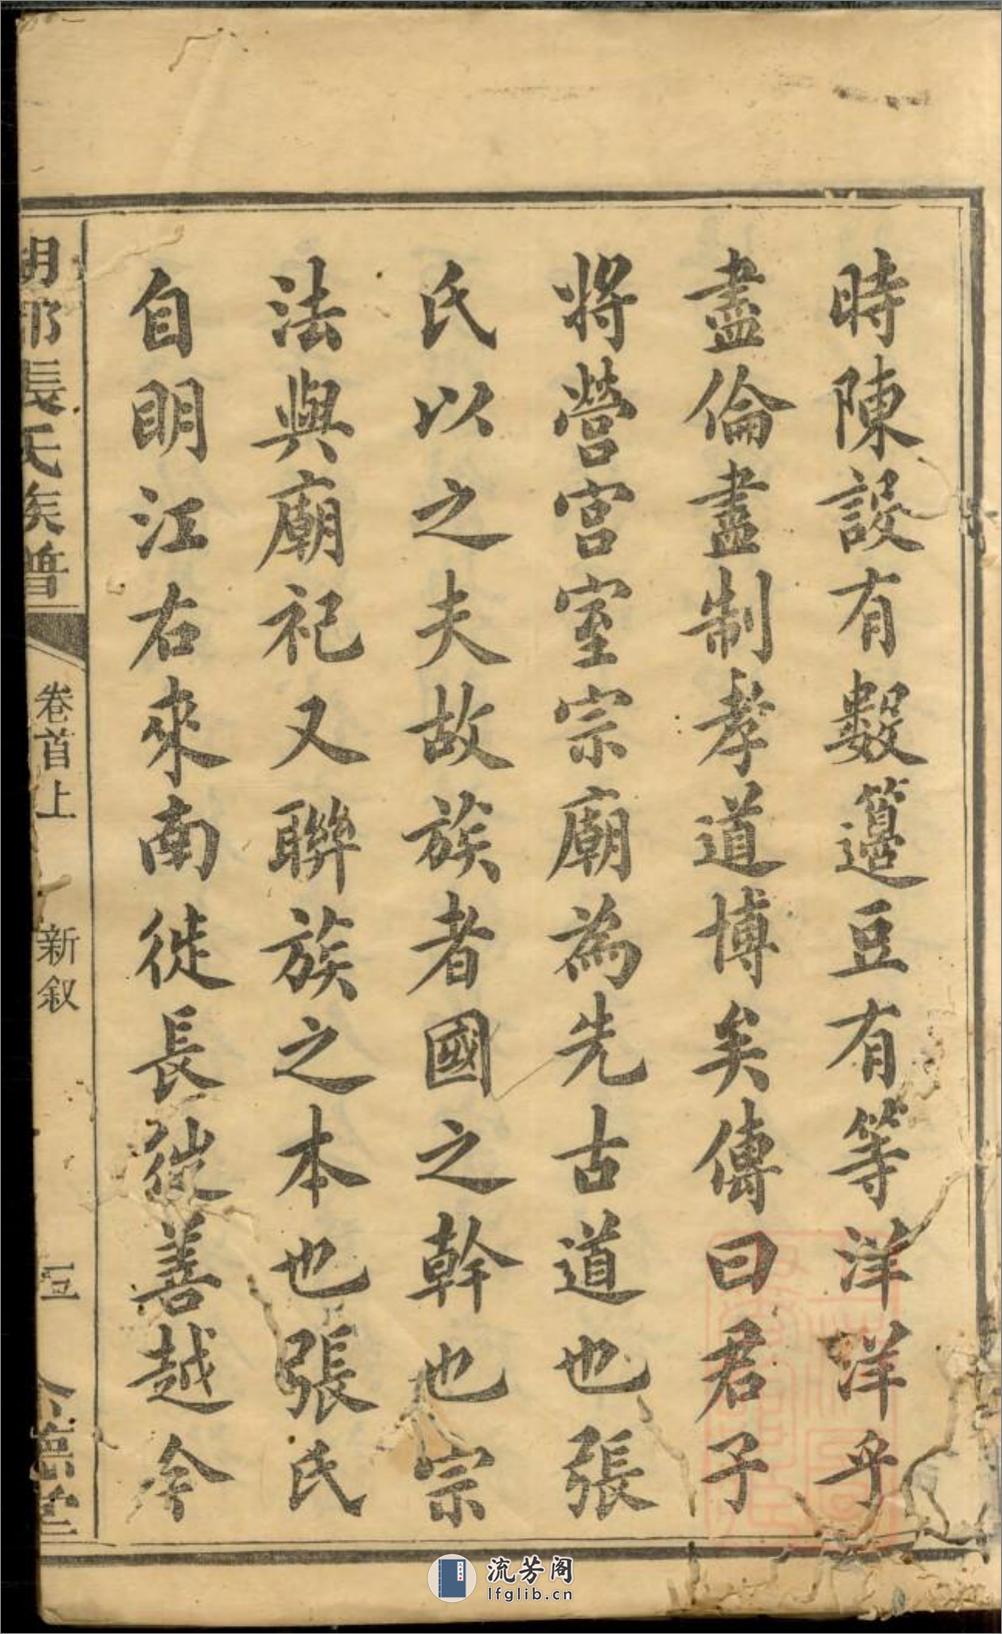 時陳設有數籩豆有等洋洋乎
盡倫盡制孝道博矣傳曰君子
將營宮室宗廟為先古道也張
氏以之夫故族者國之幹也宗
法與廟祀又聯族之本也張氏
自明江右來南徙長從善越今
張氏族譜
卷首上
新叙
五
流芳阁
lfglib.cn